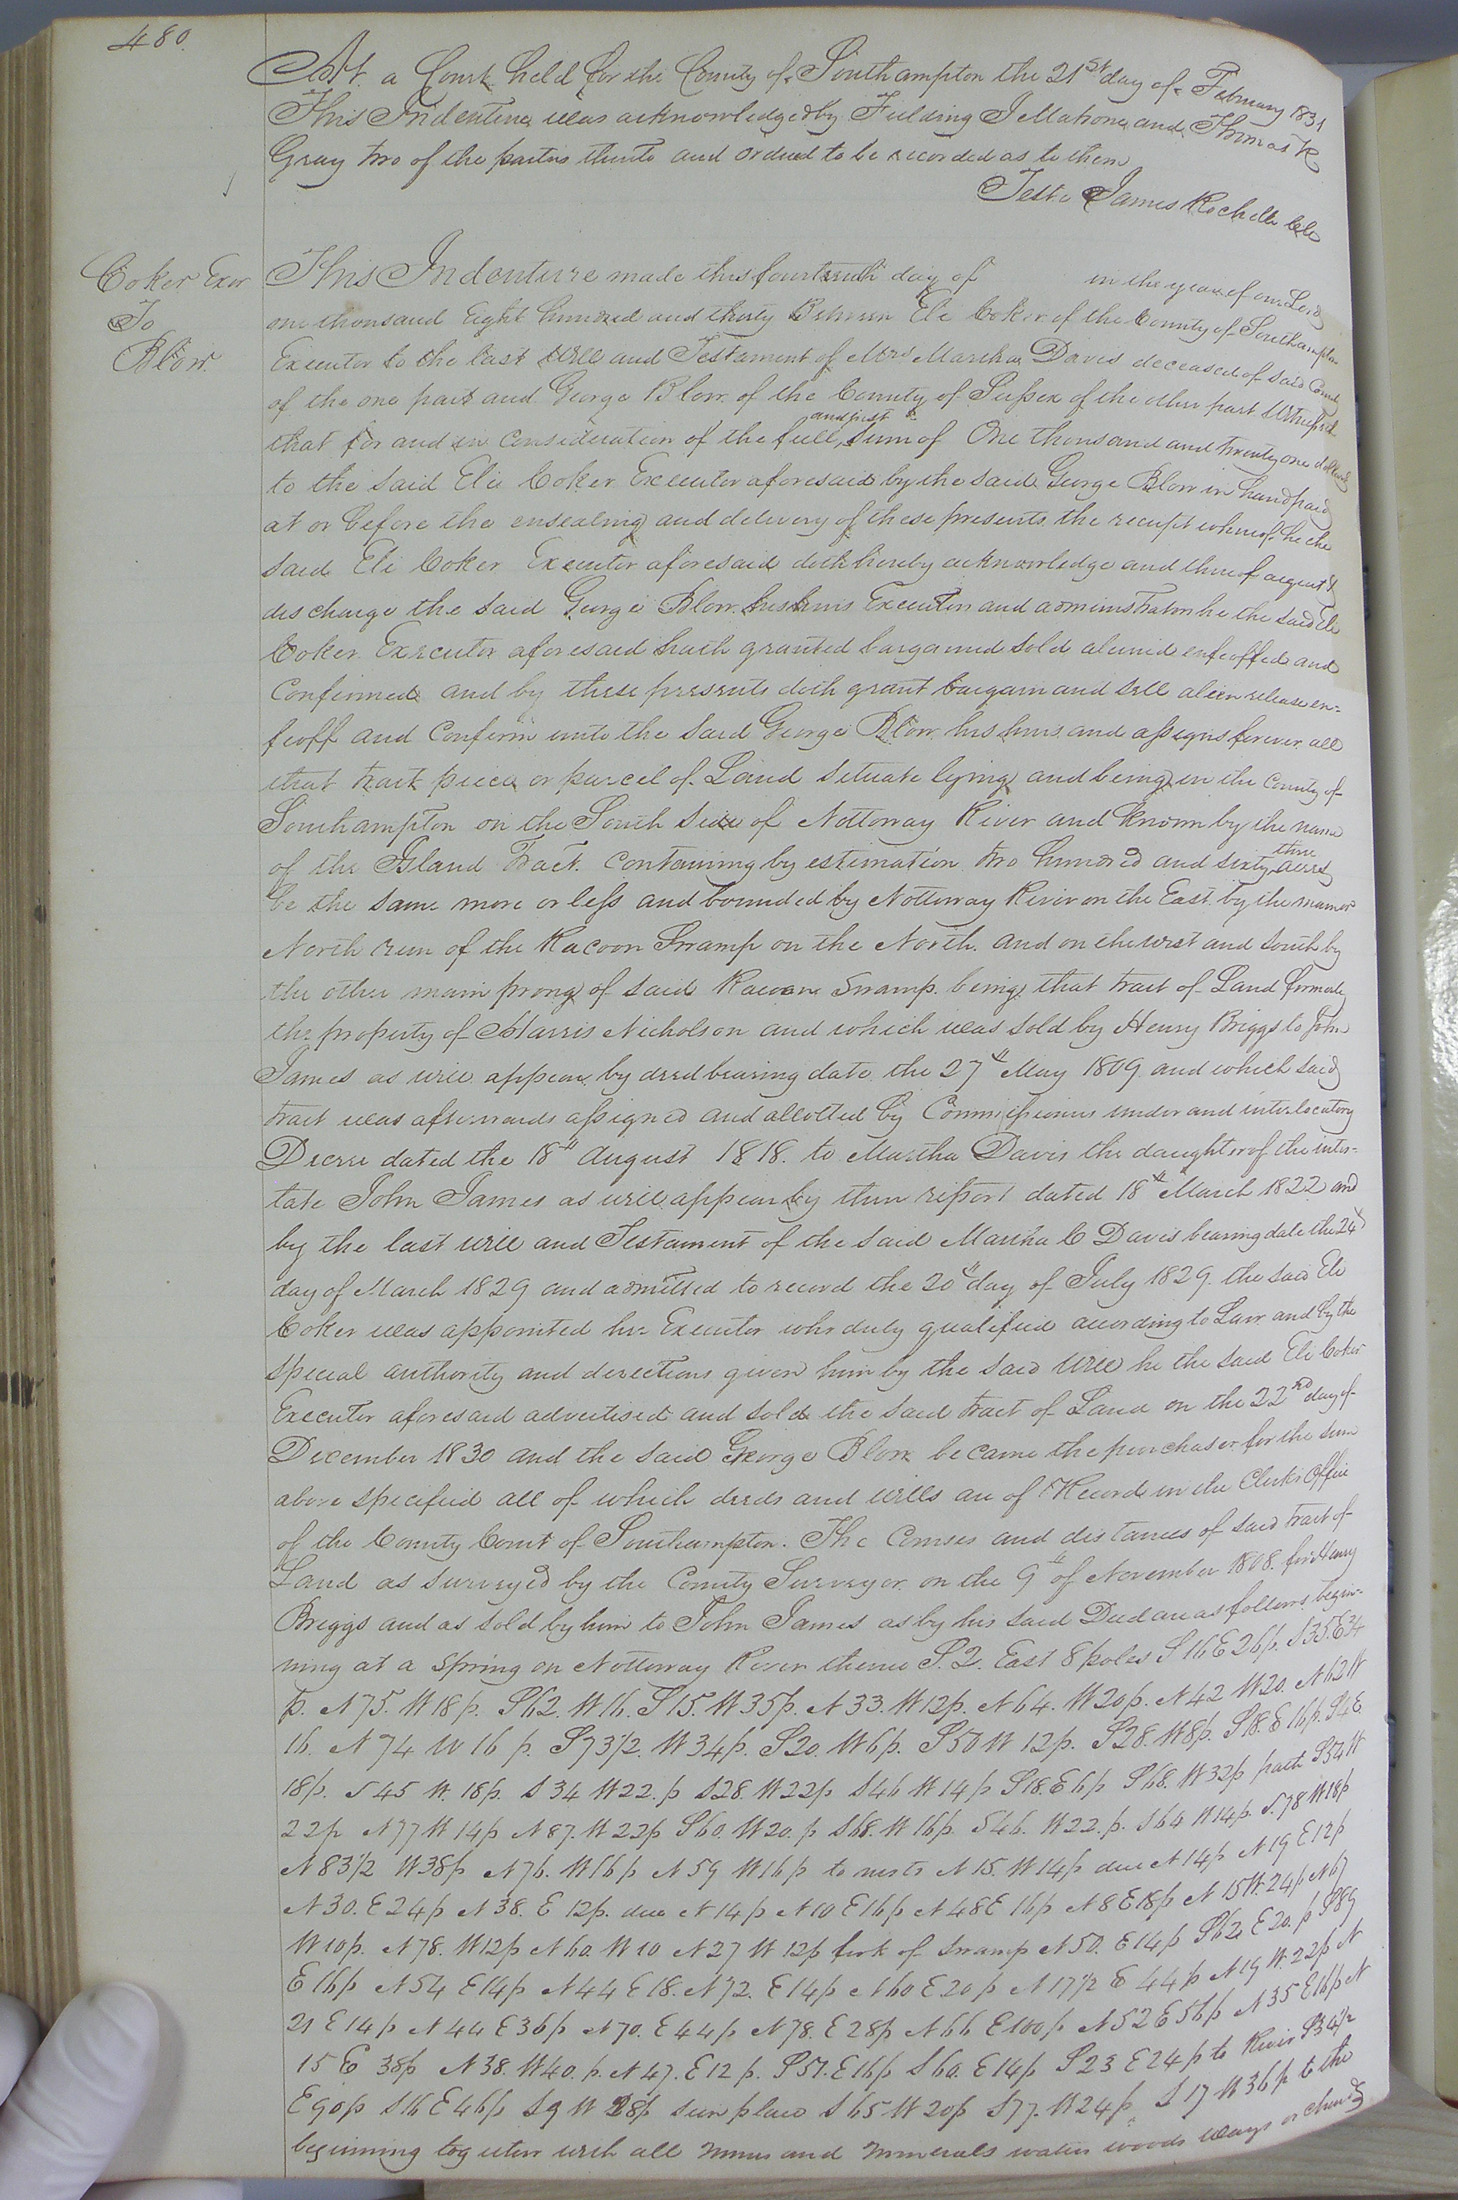 480
At a Court held for the County of Southampton the 21st day of February 1831
This Indenture was acknowledged by Fielding J Mahone and Thomas R
Gray two of the parties thereto and ordered to be recorded as to them
Teste James Rochelle Clk
Coker Exor
To
Blow
This Indenture made this fourteenth day of in the year of our Lord
one thousand Eight hundred and thirty Between Eli Coker of the County of Southampton
Executor to the last Will and Testament of Mrs Martha Davis deceased of said County
of the one part and George Blow of the County of Sussex of the other part Witnesseth
that for and in consideration of the full and just sum of One thousand and twenty one dollars
to the said Eli Coker Executor aforesaid by the said George Blow in hand paid
at or before the ensealing and delivery of these presents the receipt whereof he the
said Eli Coker Executor aforesaid doth hereby acknowledge and thereof acquit &
discharge the said George Blow his heirs Executors and administrators he the said Eli
Coker Executor aforesaid hath granted bargained sold aliened enfeoffed and
Confirmed and by these presents doth grant bargain and sell alien release en-
feoff and Confirm unto the said George Blow his heirs and assigns forever all
that tract piece or parcel of Land situate lying and being in the County of
Southampton on the South side of Nottoway River and known by the name
of the Island Tract. Containing by estimation two hundred and sixty three acres
be the same more or less and bounded by Nottoway River on the East by the
North run of the Racoon Swamp on the North. and on the west and south by
the other main prong of said Racoon Swamp. being that tract of Land formerly
the property of Harris Nicholson and which was sold by Henry Briggs to John
James as will appear by deed bearing date the 27th May 1809 and which said
tract was afterwards assigned and allotted by Commissioners under and interlocutory
Decree dated the 18th August 1818. to Martha Davis the daughter of the intes-
tate John James as will appear by their report dated 18th March 1822 and
by the last will and Testament of the said Martha C Davis bearing date the 24th
day of March 1829 and admitted to record the 20th day of July 1829. the said Eli
Coker was appointed her Executor who duly qualified according to Law and by the
special authority and directions given him by the said Will he the said Eli Coker
Executor aforesaid advertised and sold the said tract of Land on the 22nd day of
December 1830 and the said George Blow became the purchaser for the sum
above specified all of which deeds and wills are of Record in the Clerks Office
of the County Court of Southampton. The Courses and distances of said tract of
Land as surveyed by the County Surveyor on the 9th of November 1808. for Henry
Briggs and as sold by him to John James as by his said Deed are as follows begin-
ning at a Spring on Nottoway River thence S. 2. East 8 poles S 16 E 26 p. S 35. E 34
p. N 75. W 18 p. S 62. W 16. S 15. W 35 p. N 33. W 12 p. N 64. W 20 p. N 42 W 20. N 62 W
16. N 74 W 16 p. S 73 1/2. W 34 p. S 20. W 6 p. S 50 W 12 p. S 28. W 8 p. S 18. E 16 p. S 4 E
18 p. S 45 W. 18 p. S 34 W 22. p S 28. W 22 p S 46 W 14 p S 18. E 6 p S 68. W 32 p path S 54 W
22 p N 77 W 14 p N 87. W 22 p S 60. W 20. p S 68. W 16 p. S 46. W 22. p. S 64 W 14 p. S. 78 W 18 p
N 83 1/2 W 38 p N 76. W 16 p N 59 W 16 p N 15. W 14 p due N 14 p N 19 E 12 p
N 30. E 24 p N 38. E 12 p. due N 14 p N 10 E 16 p N 48 E 16 p N 8 E 18 p N 15 W. 24 p N 67
W 10 p. N 78. W 12 p N 60. W 10 N 27 W 12 p fork of swamp N 50. E 14 p S 62 E 20. p S 89
E 16 p N 54 E 14 p N 44 E 18. N 72. E 14 p N 60 E 20 p N 17 1/2 E 44 p N 19 W. 22 p N
21 E 14 p N 44 E 36 p N 70. E 44 p N 78. E 28 p N 66 E 100 p N 52 E 56 p N 35 E 16 p N
15 E 38 p N 38. W 40. p. N 47. E 12 p. S 57. E 16 p S 60. E 14 p S 23 E 24 p to River S 34 1/2
E 90 p S 16 E 46 p S 9 W 28 p S 65 W 20 p S 77. W 24 p S 17 W 36 p to the
beginning together with all mines and minerals waters woods ways